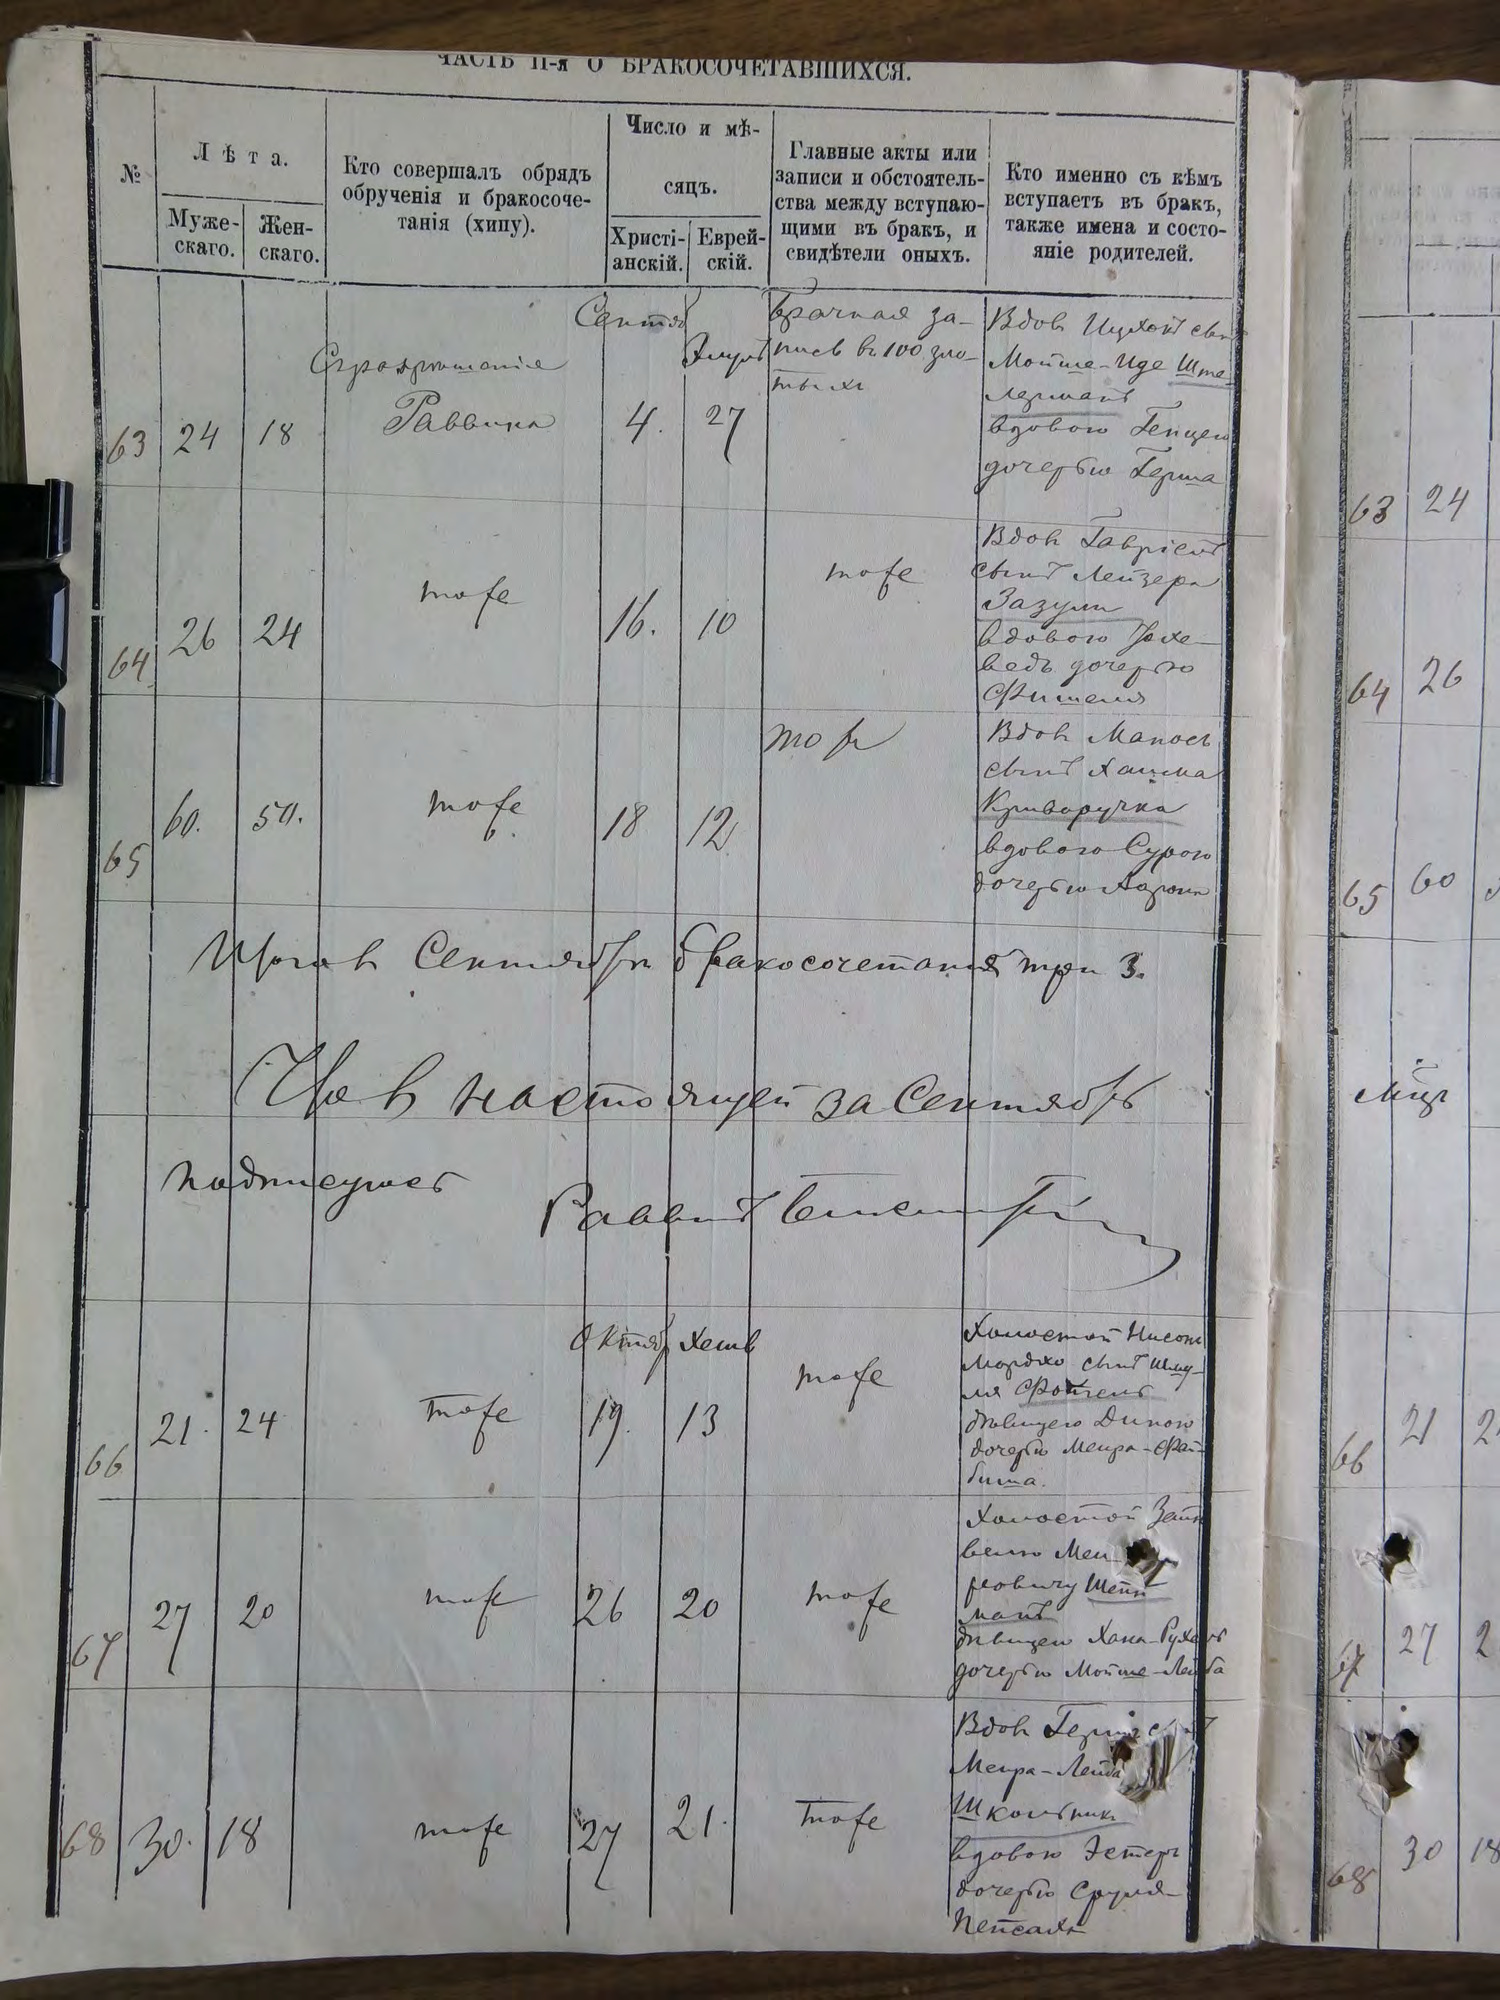 ЧАСТЬ II-я О БРАКОСОЧЕТАВШИХСЯ.
№
Лѣта.
Муже-
скаго.
Жен-
скаго.
Кто совершалъ обрядъ
обрученія и бракосоче-
танія (хипу).
Число и мѣ-
сяцъ.
Христі-
анскій.
Еврей-
скій.
Главные акты или
записи и обстоятель-
ства между вступаю-
щими въ бракъ, и
свидѣтели оныхъ.
Кто именно съ кѣмъ
вступаетъ въ бракъ,
также имена и состо-
яніе родителей.
63
24
18
Раввина
Сентяб
4.
Элулъ
27
Брачная за-
пись въ 100 зло-
тыхъ
Вдовъ Ицхокъ сынъ
Мойше-Иде Ште-
лерманъ
вдовою
дочерью Герша
64
26
24
тоже
16.
10
тоже
Вдовъ Гавріелъ
сынъ Лейзера
Зазули
вдовою Юхе-
ведъ дочерью
Фишеля
65
60.
50.
тоже
18
12
тоже
Вдовъ Манось
сынъ Хаима
Криворучка
вдовою Сурою
дочерью Аарона
Итого въ Сентябрѣ бракосочетаній три 3.
Что въ настоящей за Сентябрь
подписуюсь
Раввинъ
66
21.
24
тоже
Октяб
19.
Хешв
13
тоже
Холостой Нисонъ
Мордхо сынъ Шму-
ля
дѣвицею Диною
дочерью Меира-Фай-
биша.
67
27
20
тоже
26
20
тоже
Холостой Зейн
велю Меи
ровичу Шейн
манъ
дѣвицею Хана-Рухель
дочерью Мойше-Лейба
68
30.
18
тоже
27
21.
тоже
Вдовъ Гершъ
Меира-Лейба
Школьникъ
вдовою Эстеръ
дочерью Сруля-
Пейсаха
63
24
64
26
65
60
66
21
67
27
2
68
30
18